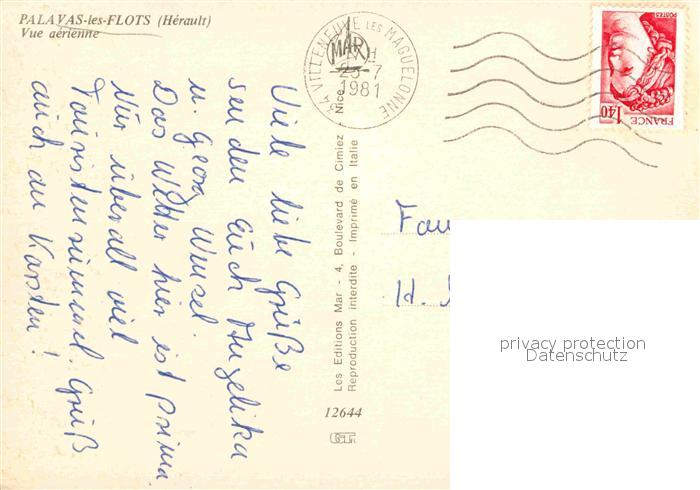 PALAVAS-les-FLOTS (Hérault)
Vue aérienne
34 VILLENEUVE LES MAGUELONNE
25-7
1981
MAR
POSTES
1,40
FRANCE
Viele liebe Grüße
senden Euch Angelika
u. Georg
Das Wetter hier ist prima.
Nur überall viel
Touristenrummel. Gruß
auch an Karsten!
Les Editions Mar - 4, Boulevard de Cimiez - Nice
Reproduction interdite - Imprimé en Italie
12644
Fam
H.
privacy protection
Datenschutz